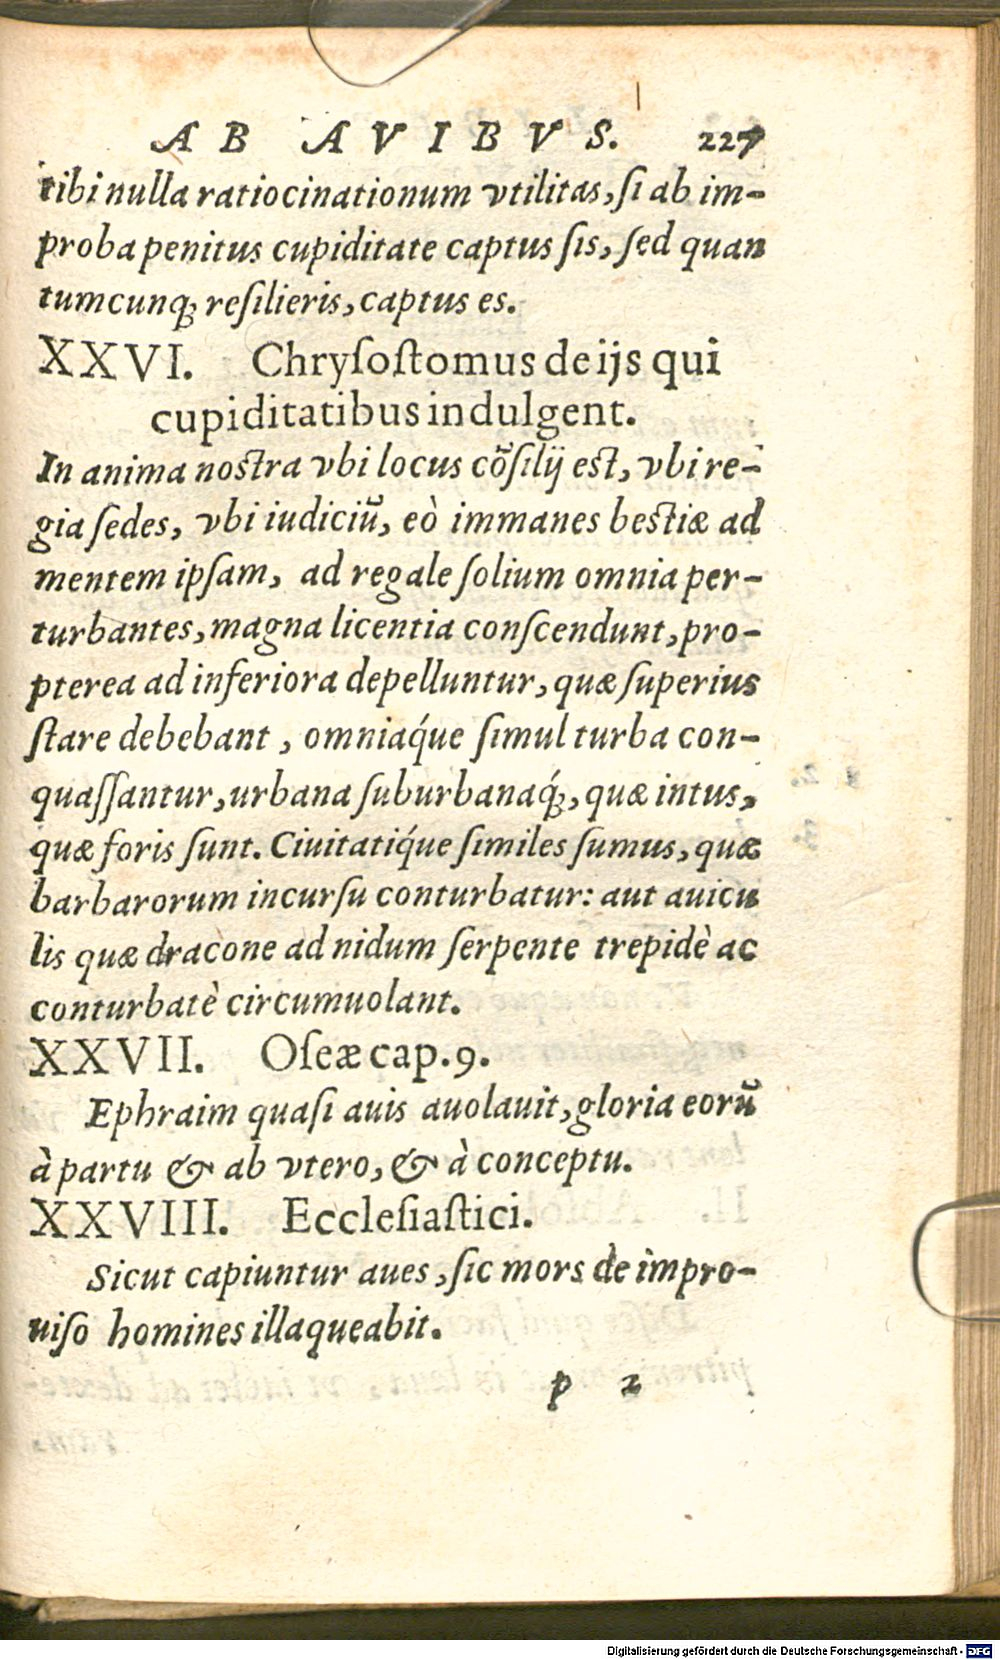 AB AVIBVS. 227
tibi nulla ratiocinationum vtilitas, ſi ab im-
proba penitus cupiditate captus ſis, ſed quan
tumcunq; reſilieris, captus es.
XXVI. Chryſoſtomus de ijs qui
cupiditatibus indulgent.
In anima noſtra vbi locus cōſilij eſt, vbi re-
gia ſedes, vbi iudiciū, eò immanes beſtiæ ad
mentem ipſam, ad regale ſolium omnia per-
turbantes, magna licentia conſcendunt, pro-
pterea ad inferiora depelluntur, quæ ſuperius
ſtare debebant, omniaq́ue ſimul turba con-
quaſſantur, urbana ſuburbanaq́;, quæ intus,
quæ foris ſunt. Ciuitatiq́ue ſimiles ſumus, quæ
barbarorum incurſu conturbatur: aut auicu
lis quæ dracone ad nidum ſerpente trepidè ac
conturbatè circumuolant.
XXVII. Oſeæ cap. 9.
Ephraim quaſi auis auolauit, gloria eorū
à partu & ab vtero, & à conceptu.
XXVIII. Eccleſiaſtici.
Sicut capiuntur aues, ſic mors de impro-
uiſo homines illaqueabit.
p 2
Digitalisierung gefördert durch die Deutsche Forschungsgemeinschaft - DFG